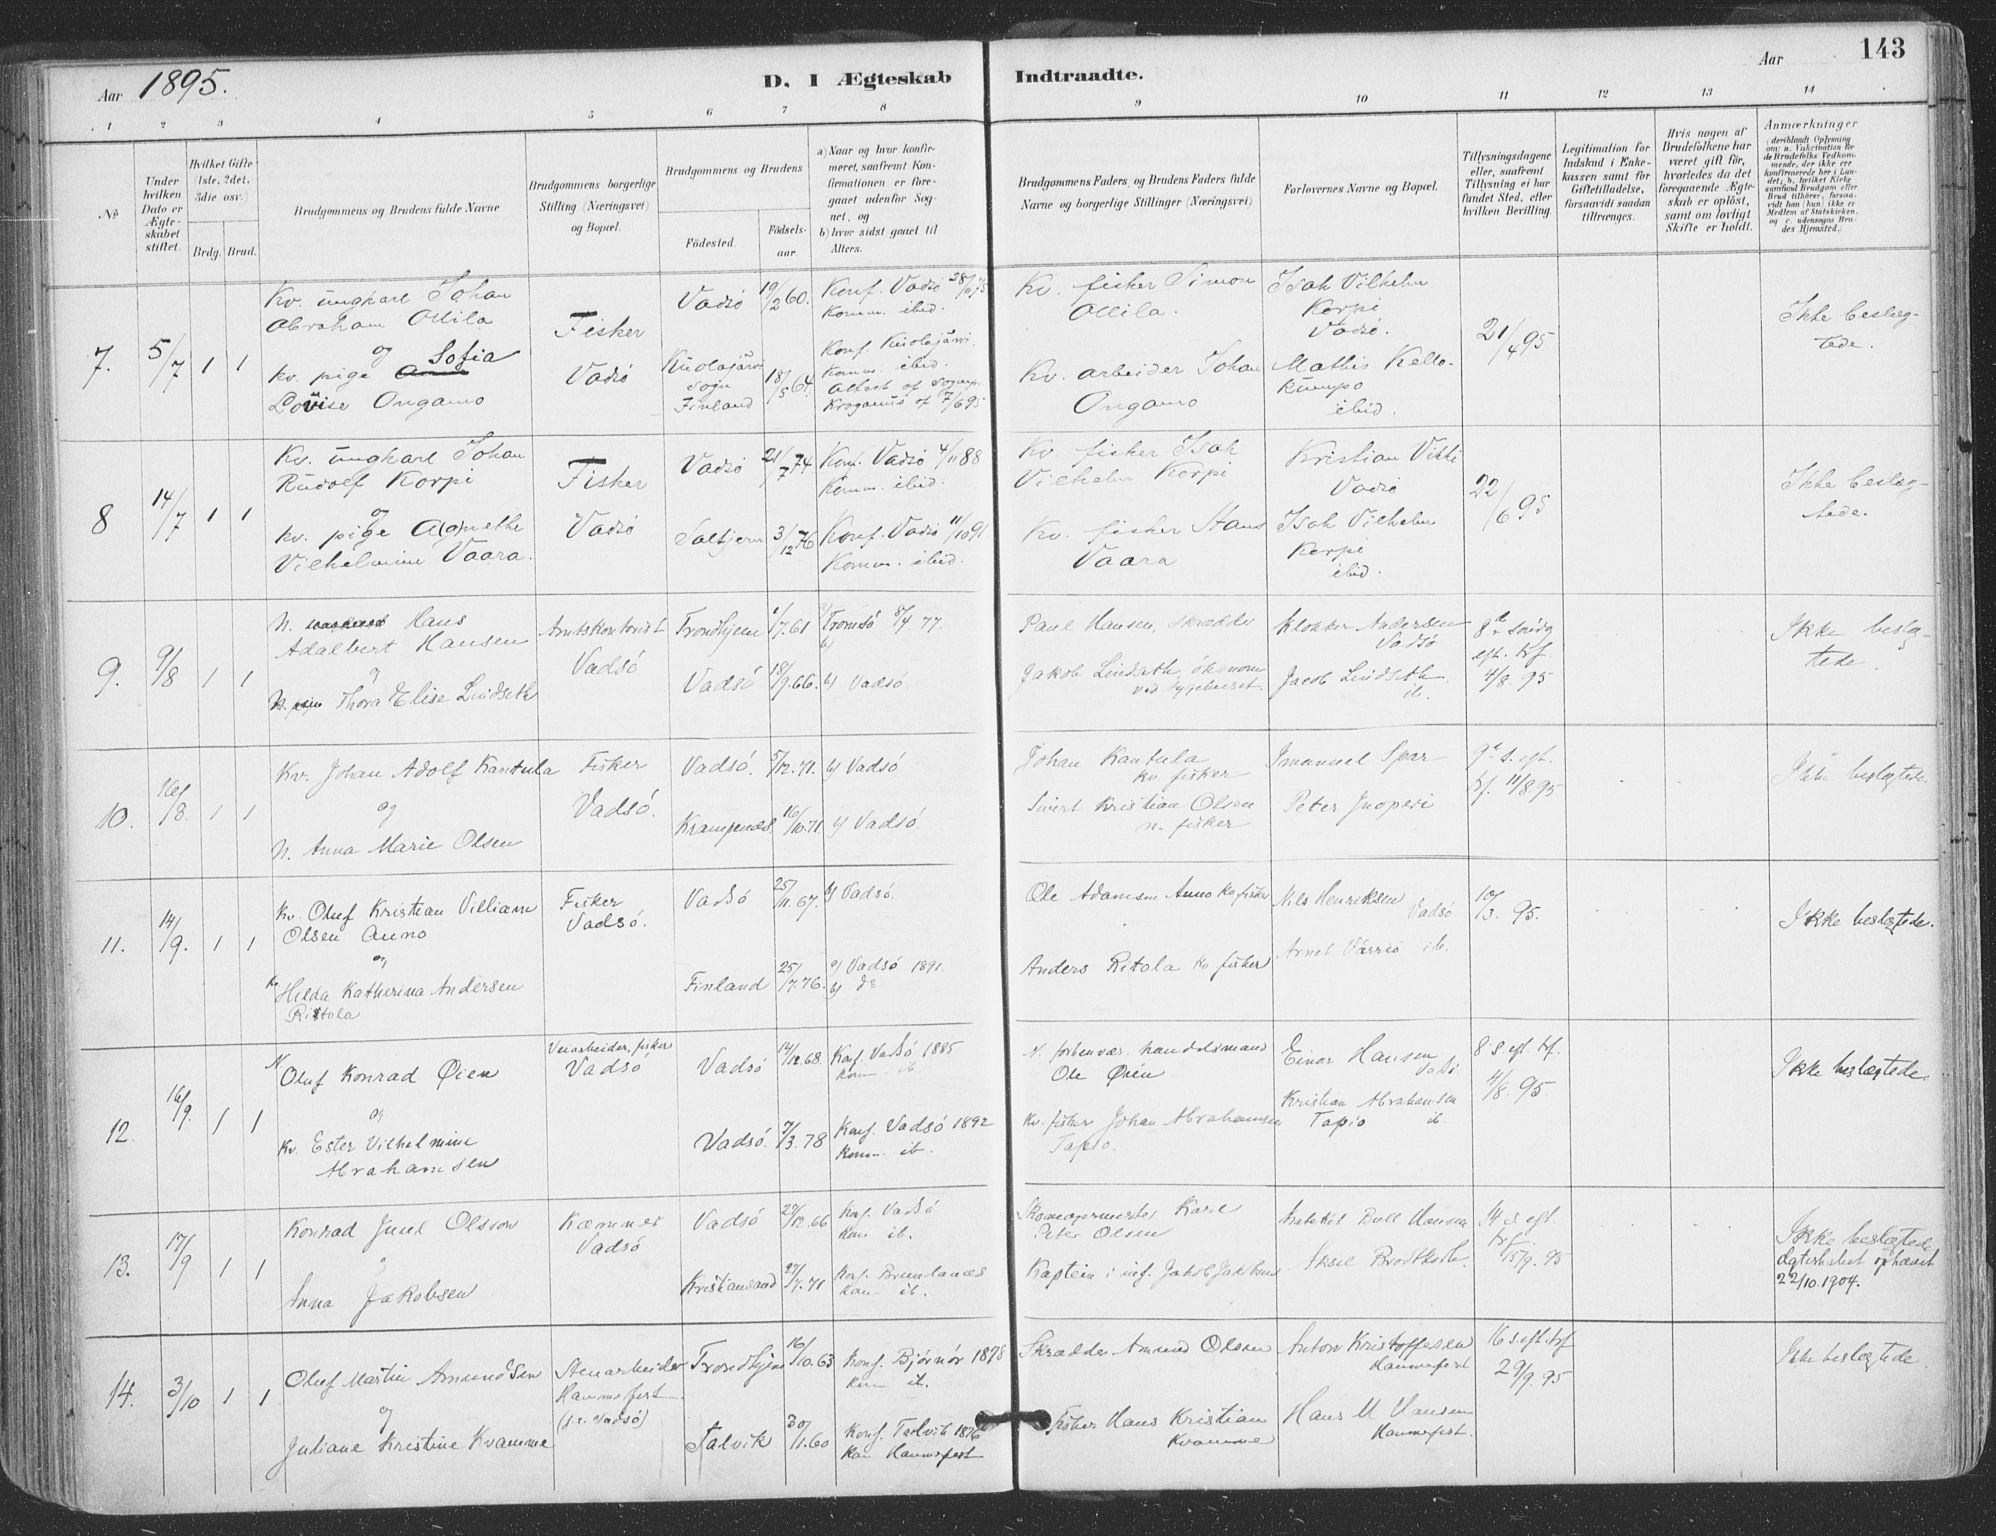 Aar 1895.
D. I Ægteskab
Indtraadte.
Aar
143
1 2 3 4 5 6 7 8 9 10 11 12 13 14
№
Under hvilken Dato er Ægteskabet stiftet.
Hvilket Gifte (1ste, 2det, 3die osv.)
Brdg. Brud.
Brudgommens og Brudens fulde Navne
Brudgommens borgerlige Stilling (Næringsvei) og Bopæl.
Brudgommens og Brudens
Fødested.
Fødselsaar.
a) Naar og hvor konfirmeret, saafremt Konfirmationen er foregaaet udenfor Sognet, og
b) hvor sidst gaaet til Alters.
Brudgommens Faders og Brudens Faders fulde Navne og borgerlige Stillinger (Næringsvei)
Forlovernes Navne og Bopæl.
Tillysningsdagene eller, saafremt Tillysning ei har fundet Sted, efter hvilken Bevilling.
Legitimation for Indskud i Enkekassen samt for Giftetilladelse, forsaavidt saadan tiltrænges.
Hvis nogen af Brudefolkene har været gift før, hvorledes da det foregaaende Ægteskab er opløst, samt om lovligt Skifte er holdt.
Anmærkninger
7. 5/7 1 1
Kv. ungkarl Johan
Abraham Ollila
og
kv. pige Sofia
Lovise Ongamo
Fisker
Vadsö
Vadsö 19/2 60.
Kuolajärvi
sogn
Finland 18/5 64.
Konf. Vadsö
Komm. ibid.
Konf. Kuolajärvi.
Komm. ibid.
Attest af Sognep.
Kroganus af 7/6 95
Kv. fisker Simon
Ollila.
Kv. arbeider Johan
Ongamo
Isak Vilhelm
Korpi
Vadsö.
Mathis Kello-
kumpo
ibid.
21/4 95
Ikke beslæg-
tede.
8 14/7 1 1
Kv. ungkarl Johan
Rudolf Korpi
og
kv. pige Agnethe
Vilhelmine Vaara.
Fisker
Vadsö
Vadsö 21/7 74
Saltjern 3/12 76
Konf. Vadsö 4/11 88
Komm. ibid.
Konf. Vadsö 11/10 91
Komm. ibid.
Kv. fisker Isak
Vilhelm Korpi
Kv. fisker Hans
Vaara
Kristian Vikki
Vadsö
Isak Vilhelm
Korpi
ibid.
22/6 95
Ikke beslæg-
tede.
9. 9/8 1 1
N. Hans
Adalbert Hansen
og
N. Thora Elise Lindseth
Amtskontorist
Vadsö
Trondhjem 1/7 61
Vadsö 18/9. 66.
Tromsö 8/4 77.
b)
b) Vadsö
Paul Hansen, skrædder
Jakob Lindseth, økonom
ved sygehuset.
Klokker Andersen
Vadsö
Jacob Lindseth
ib.
8de søndg
eft. trf.
4/8. 95
Ikke beslæg-
tede.
10. 1 1
Kv. Johan Adolf Kantula
og
N. Anna Marie Olsen
Fisker
Vadsö.
Vadsö. 5/12. 71.
Krampenæs 16/10. 71
b) Vadsö
b) Vadsö.
Johan Kantula
kv. fisker
Sivert Kristian Olsen
n. fisker
Imanuel Spar
Peter Juoperi
9de s. eft.
trf. 11/8. 95
Ikke beslægtede.
11. 14/9. 1 1
Kv. Oluf Kristian Villiam
Olsen Auno
og
Kv. Hilda Katherina Andersen
Ritola
Fisker
Vadsö.
Vadsö 25/11. 67.
Finland 25/7. 76.
b) Vadsö.
a) Vadsö 1891.
b) do
Ole Adamsen Auno kv fisker
Anders Ritola kv fisker
Nils Henriksen
Vadsö
ib.
10/3. 95.
Ikke beslægtede.
12. 16/9. 1 1
N.
Oluf Konrad Øien
og
Kv. Ester Vilhelmine
Abrahamsen
Veiarbeider, fisker
Vadsö
Vadsö 14/12. 68.
Vadsö. 7/3. 78
Konf. Vadsö 1885
Kom. ib.
Konf. Vadsö 1892
Komm. ib.
N. forhenvær. handelsmand
Ole Øien
Kv. fisker Johan Abrahamsen
Tapio.
Einar Hansen
Vadsö
Kristian Abrahamsen
Tapio ib.
8 s. eft. trf.
4/8. 95.
Ikke beslægtede.
13. 17/9 1 1
Konrad Juul Olsson
Anna Jakobsen
Kæmner
Vadsö
Vadsö 27/12. 66
Kristiansand 27/7. 71
Konf. Vadsö
Kom ib.
Konf. Brunlanæs
Kom ib.
Skomagermester Karl
Peter Olsen
Kaptein i inf. Jakob Jakobsen
Bull Hansen
Aksel Brodtkorb.
14 s. eft.
trf.
15/9. 95
Ikke beslægtede
Ægteskabet ophævet
22/10. 1904.
14. 3/10 1 1
Oluf Martin Amundsen
og
Juliane Kristine Kvamme
Stenarbeider
Hammerfest
(f. t. Vadsö)
Trondhjem 16/10. 63
Talvik 30/1. 60
Konf. Bjørnör 1878
Kom ib.
Konf. Talvik 1876
Kom Hammerfest
Skrædder Amund Olsen
Fisker Hans Kristian
Kvamme
Anton Kristoffersen
Hammerfest
Hans M Hansen
Hammerfest.
16 s. eft. trf
29/9. 95
Ikke beslægtede.